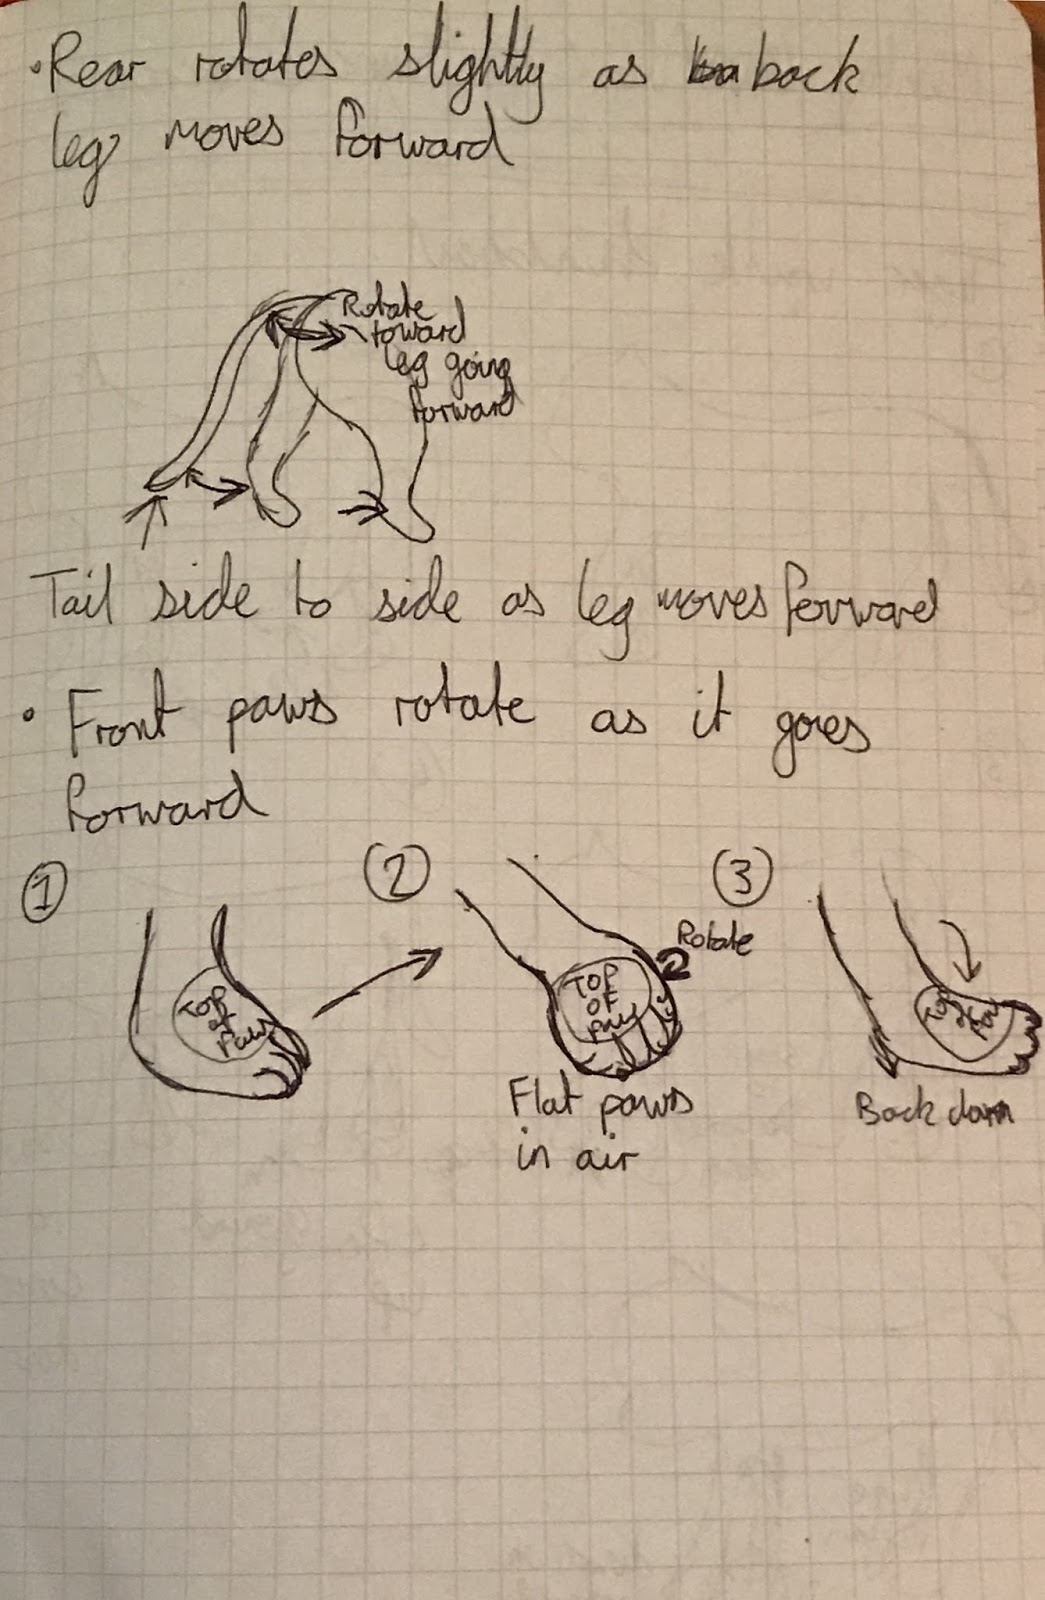 • Rear rotates slightly as back
leg moves forward
Rotate
toward
leg going
forward
Tail side to side as leg moves forward
• Front paws rotate as it goes
forward
1
2
3
Top
of
Paw
Top
of
Paw
Rotate
Top
of
Paw
Flat paws
in air
Back down